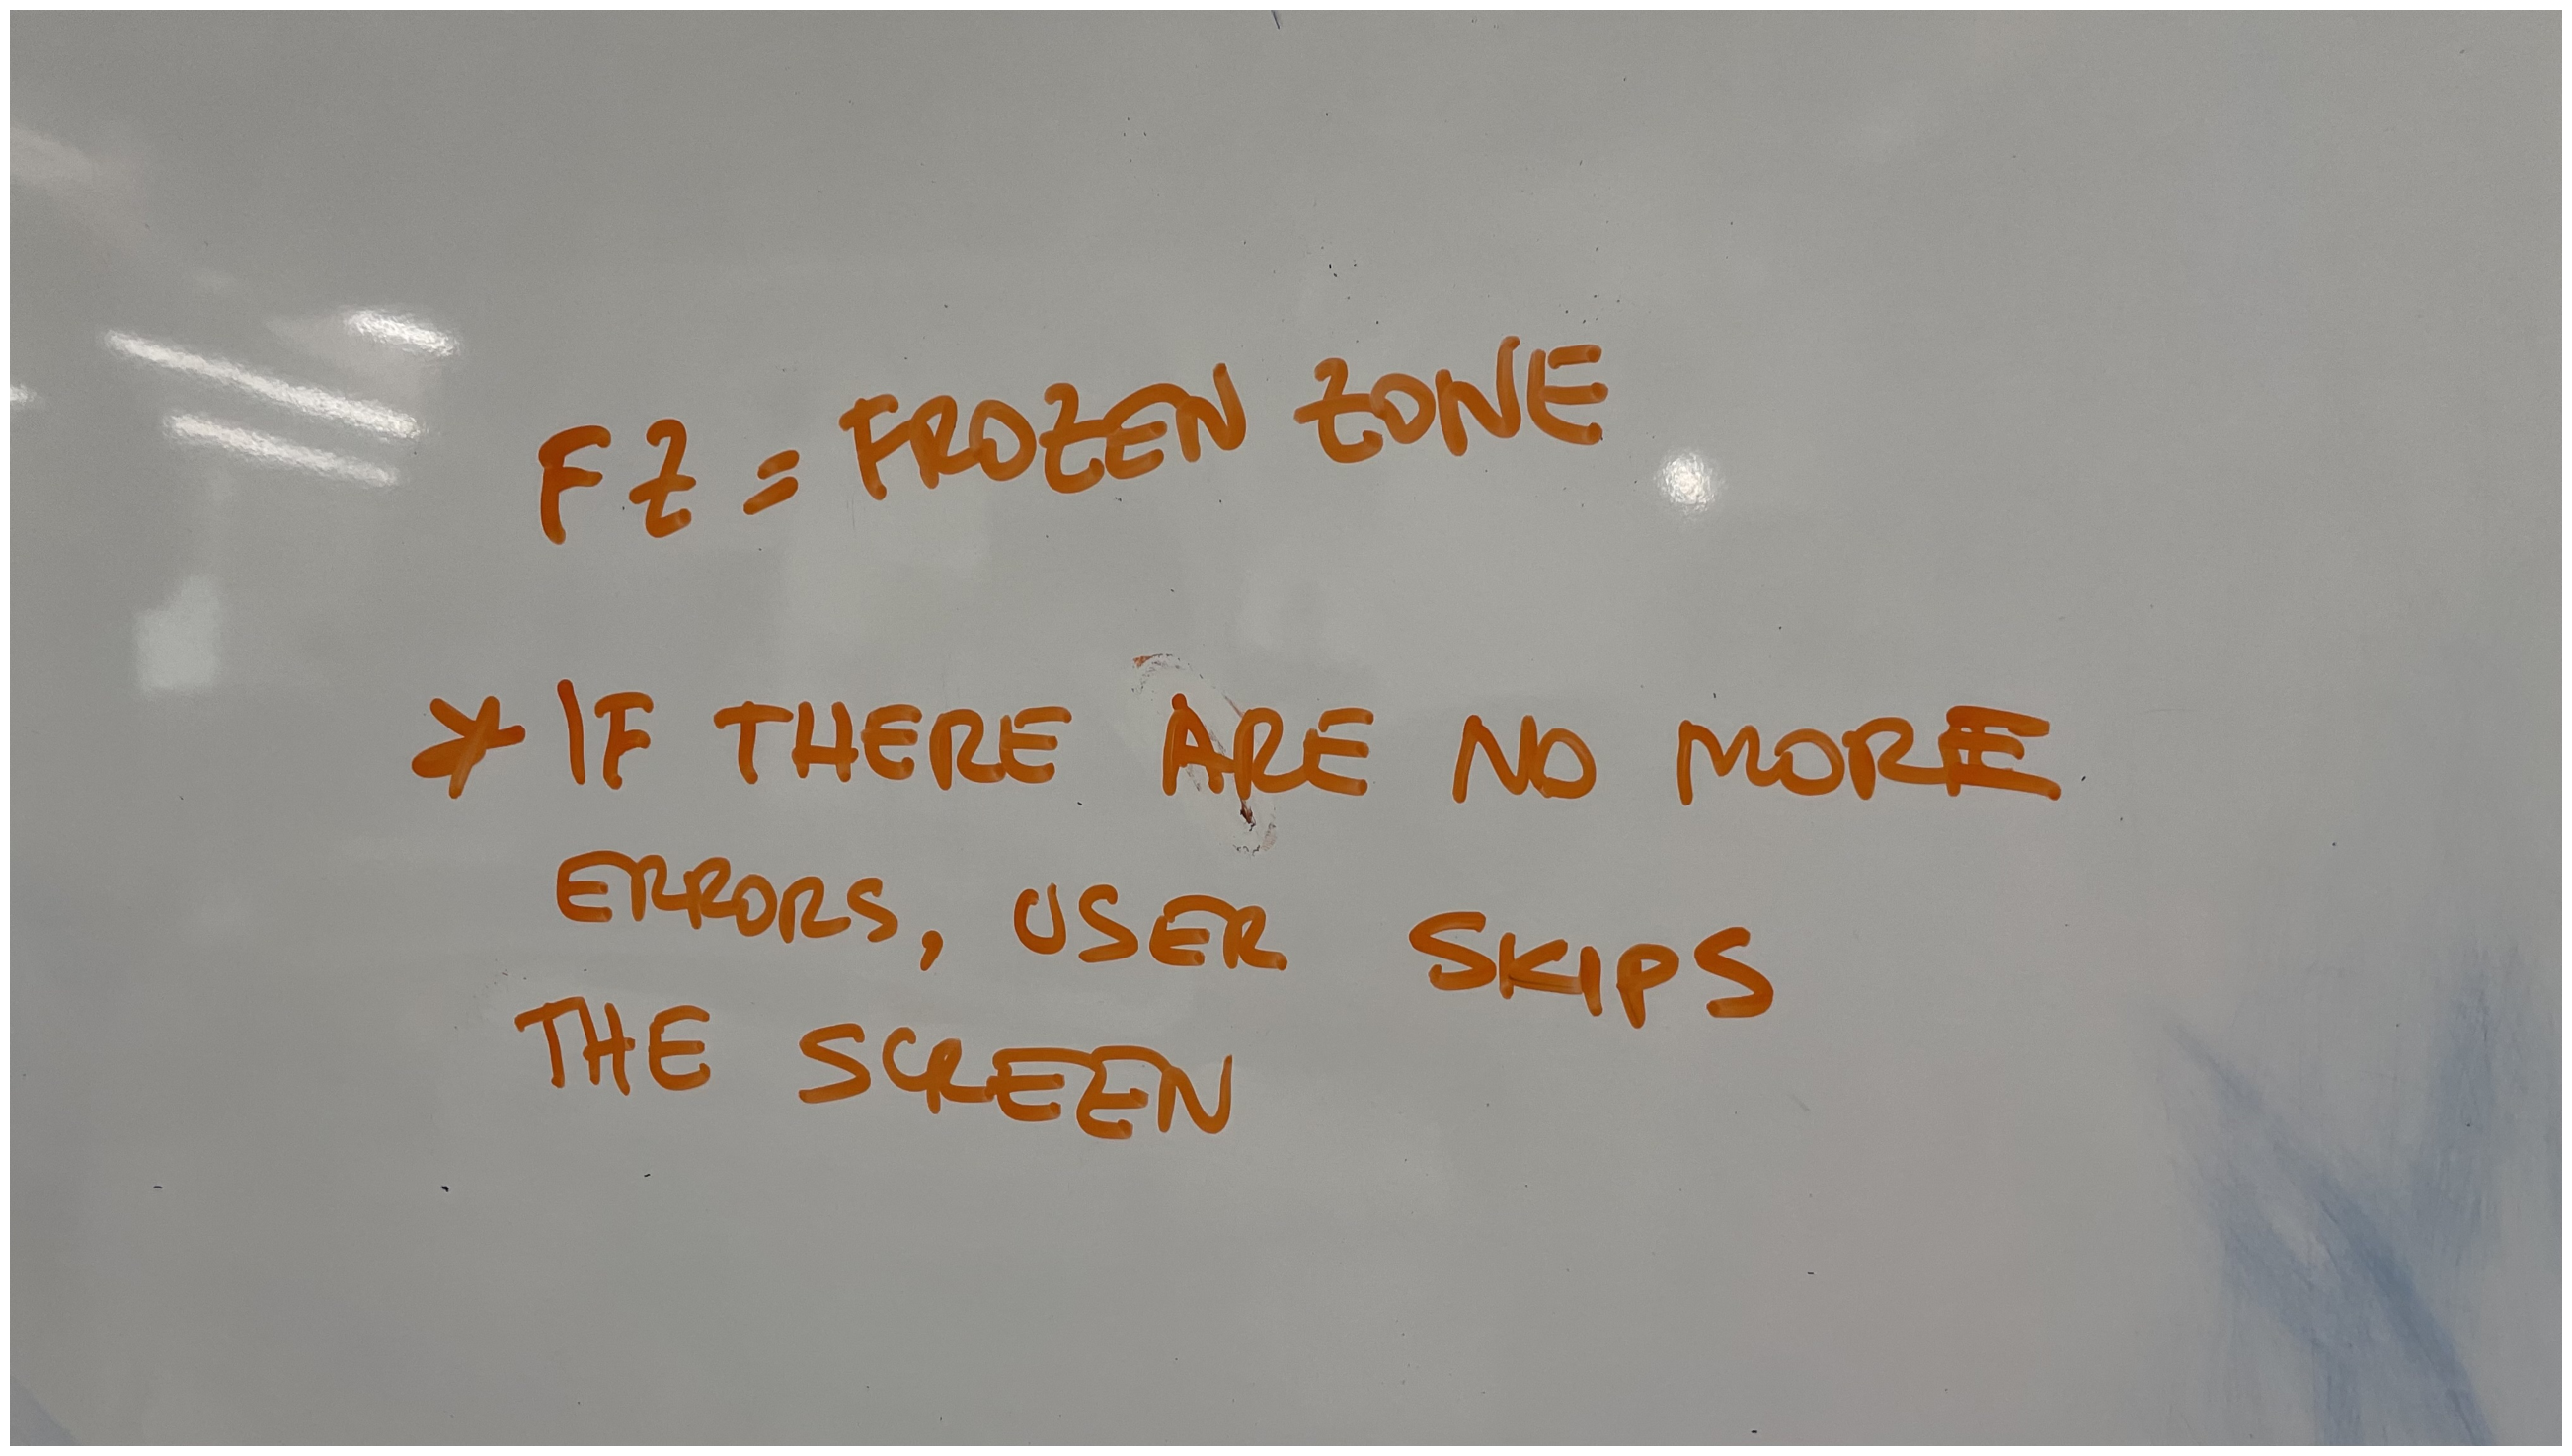 FZ = FROZEN ZONE
* IF THERE ARE NO MORE
ERRORS, USER SKIPS
THE SCREEN